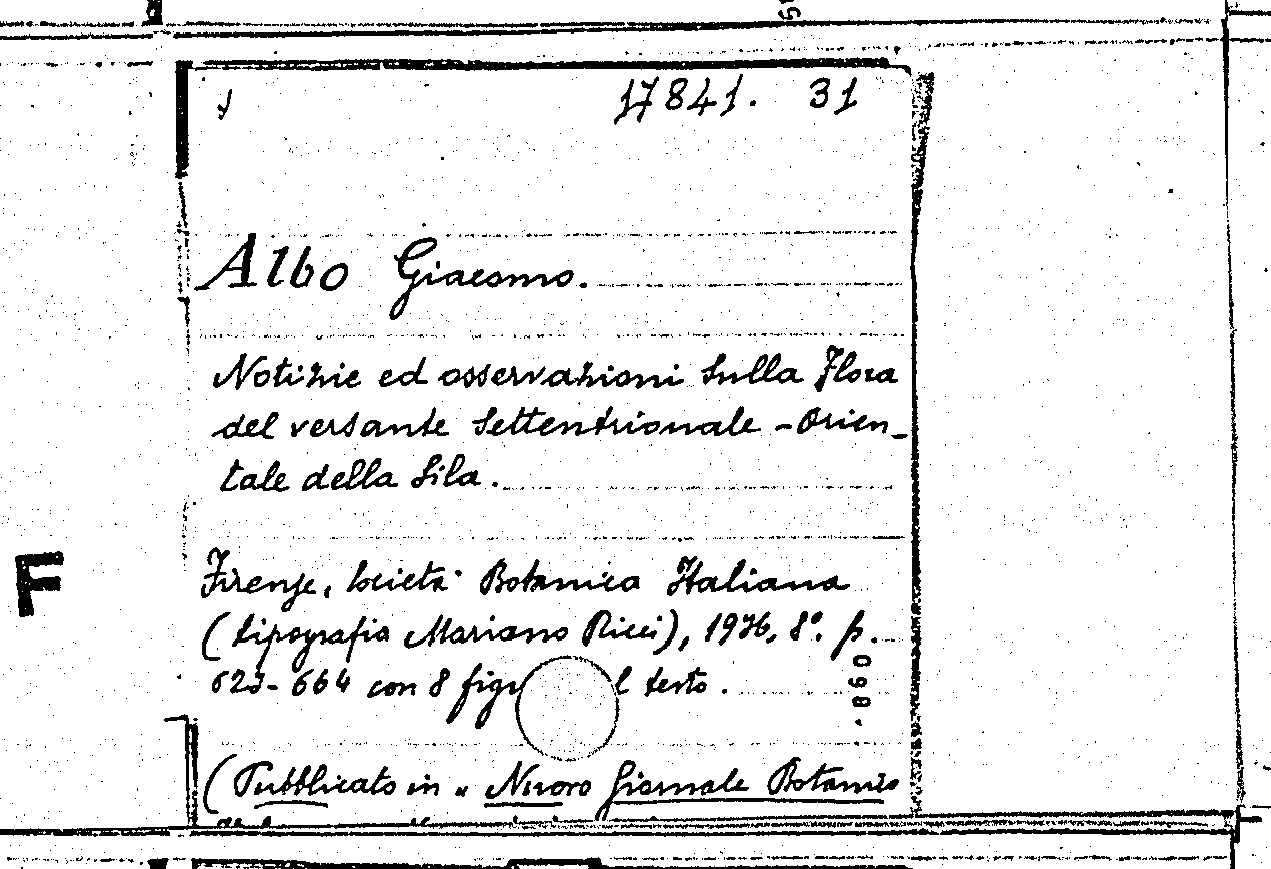 17841. 31
Albo Giacomo.
Notizie ed osservazioni sulla Flora
del versante Settentrionale - Orien-
tale della Sila.
F
Firenze, Società Botanica Italiana
(tipografia Mariano Ricci), 1936, 8°. p.
623-664 con 8 figu l testo.
090.
(Pubblicato in " Nuovo Giornale Botanico